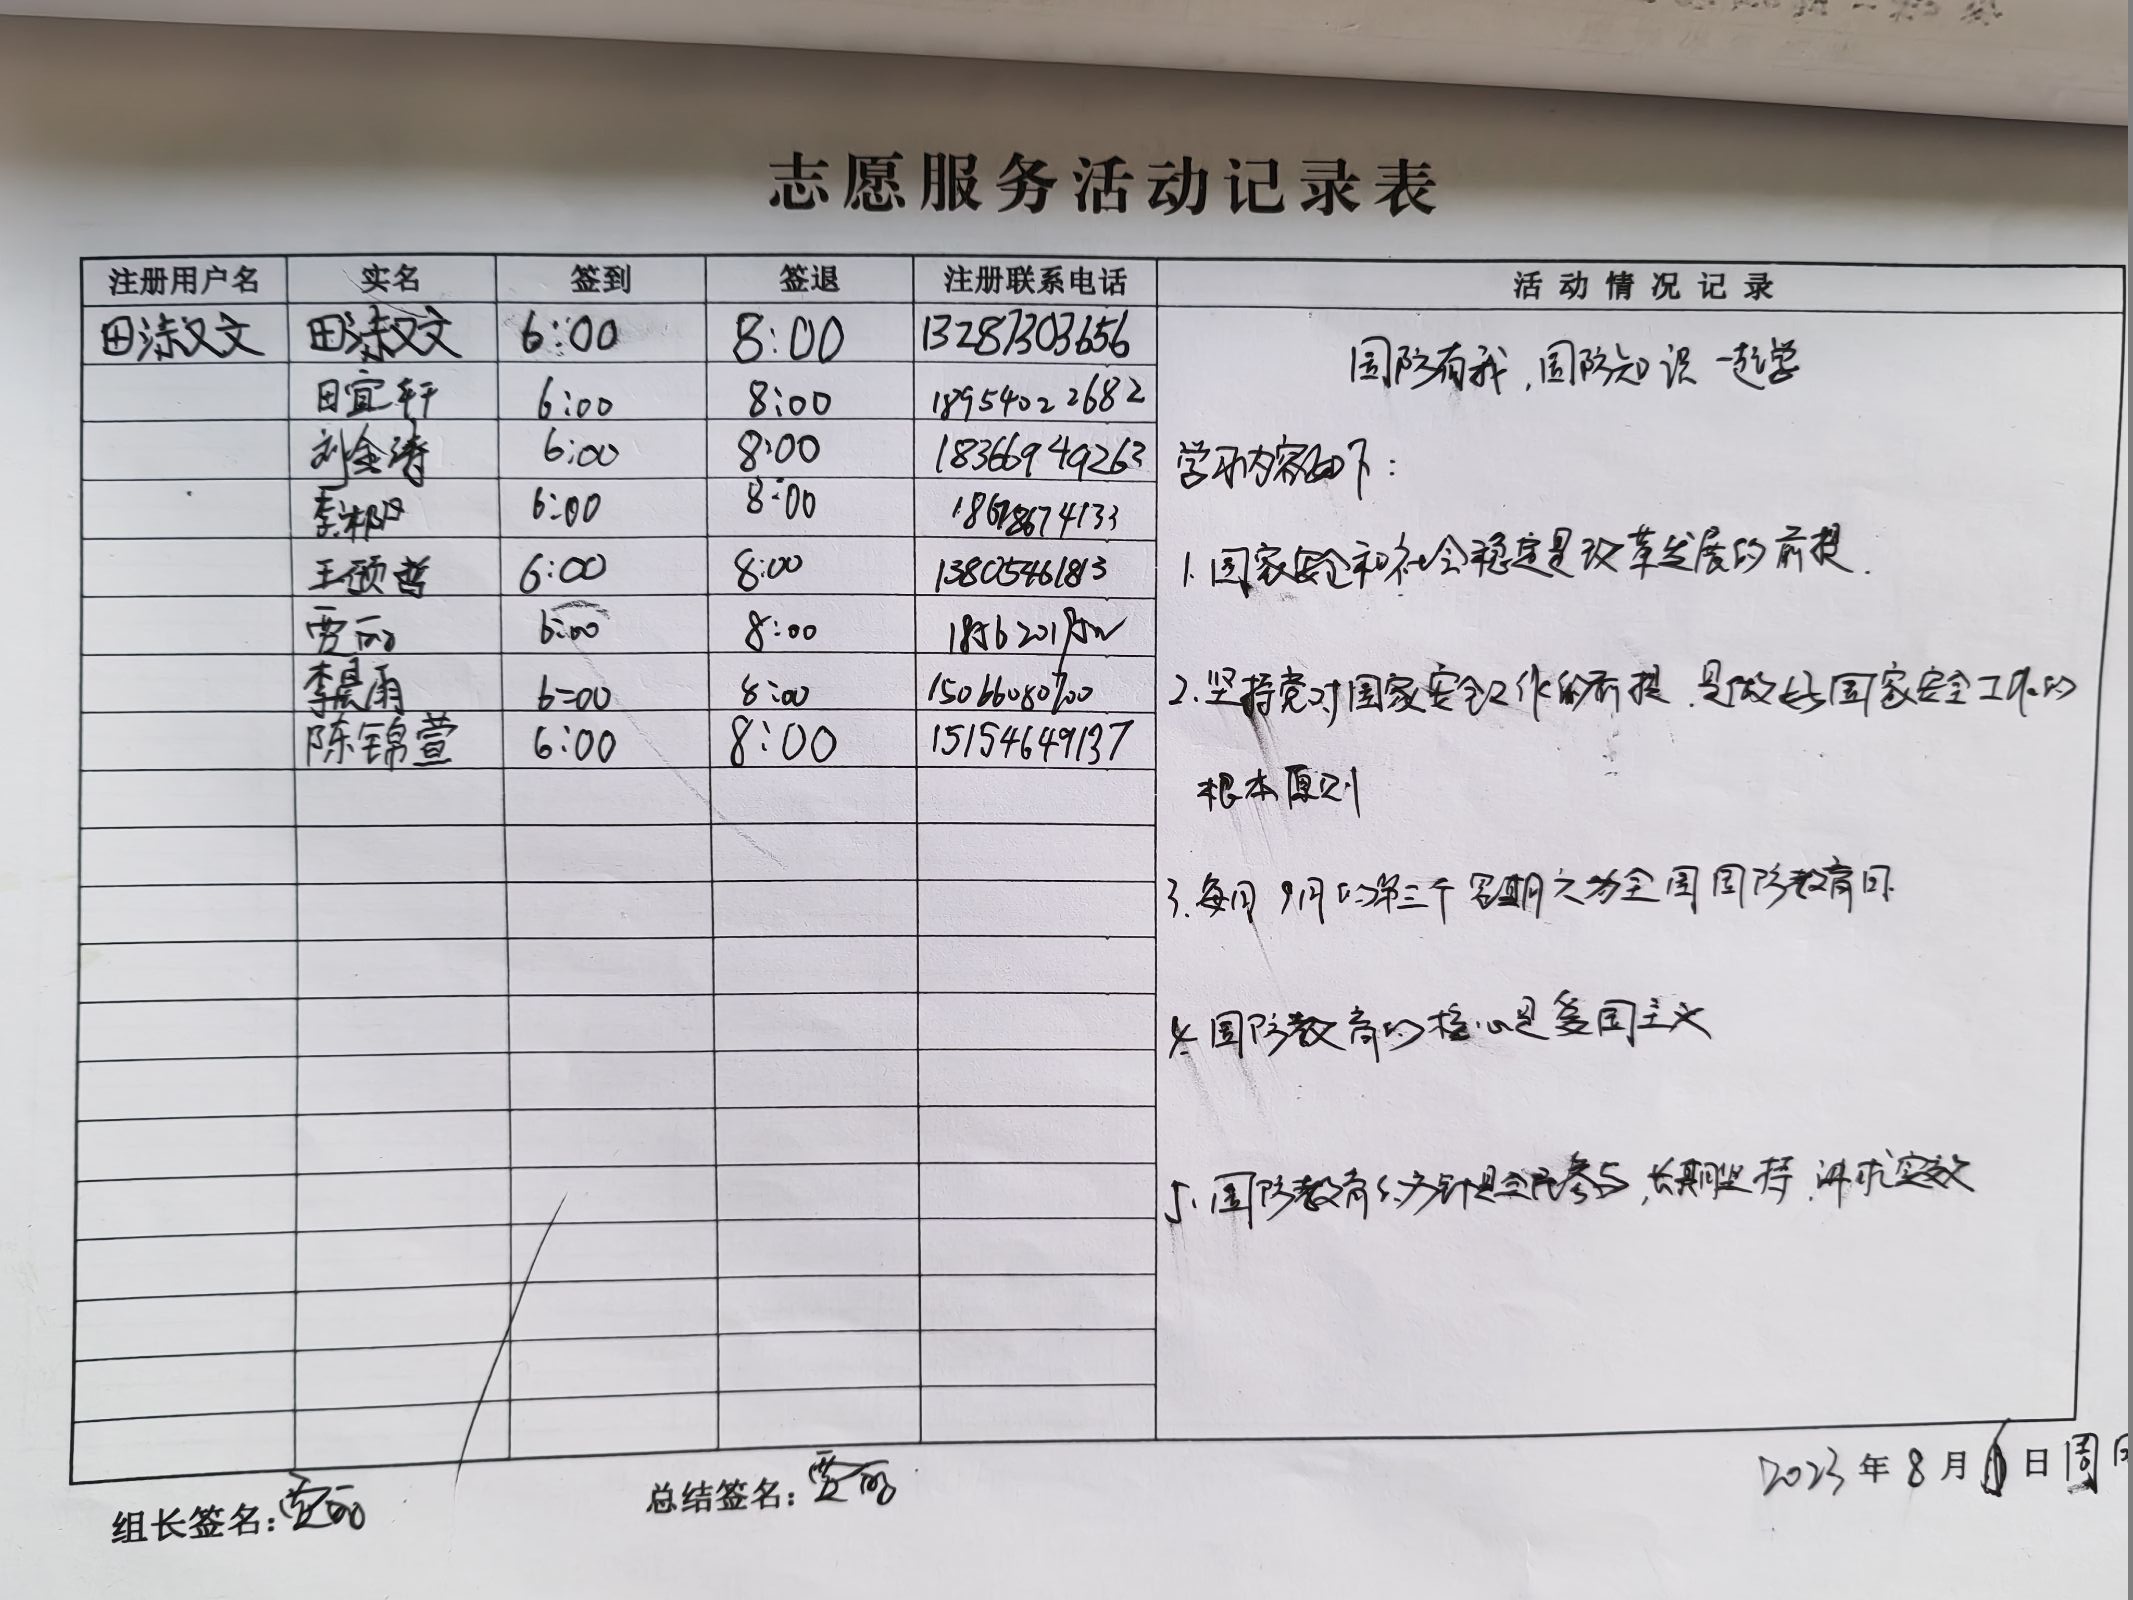 志愿服务活动记录表
注册用户名 实名 签到 签退 注册联系电话 活动情况记录
田涂又文 田涂又文 6:00 8:00 13287303656
田宜轩 6:00 8:00 18954022682
刘金涛 6:00 8:00 18366949263
6:00 8:00 18678674133
王硕哲 6:00 8:00 13805461813
贾丽 6:00 8:00
李晨雨 6:00 8:00 15066080700
陈锦萱 6:00 8:00 15154649137
国防有我,国防知识一起学
学习内容如下:
1.国家安全和社会稳定是改革发展的前提.
2.坚持党对国家安全工作的前提.是做好国家安全工作的
根本原则
3.每月9月的第三个星期六为全国国防教育日.
4.国防教育的核心是爱国主义
5.国防教育的方针是全民参与,长期坚持,讲求实效
组长签名:贾丽
总结签名:贾丽
2023年8月6日周